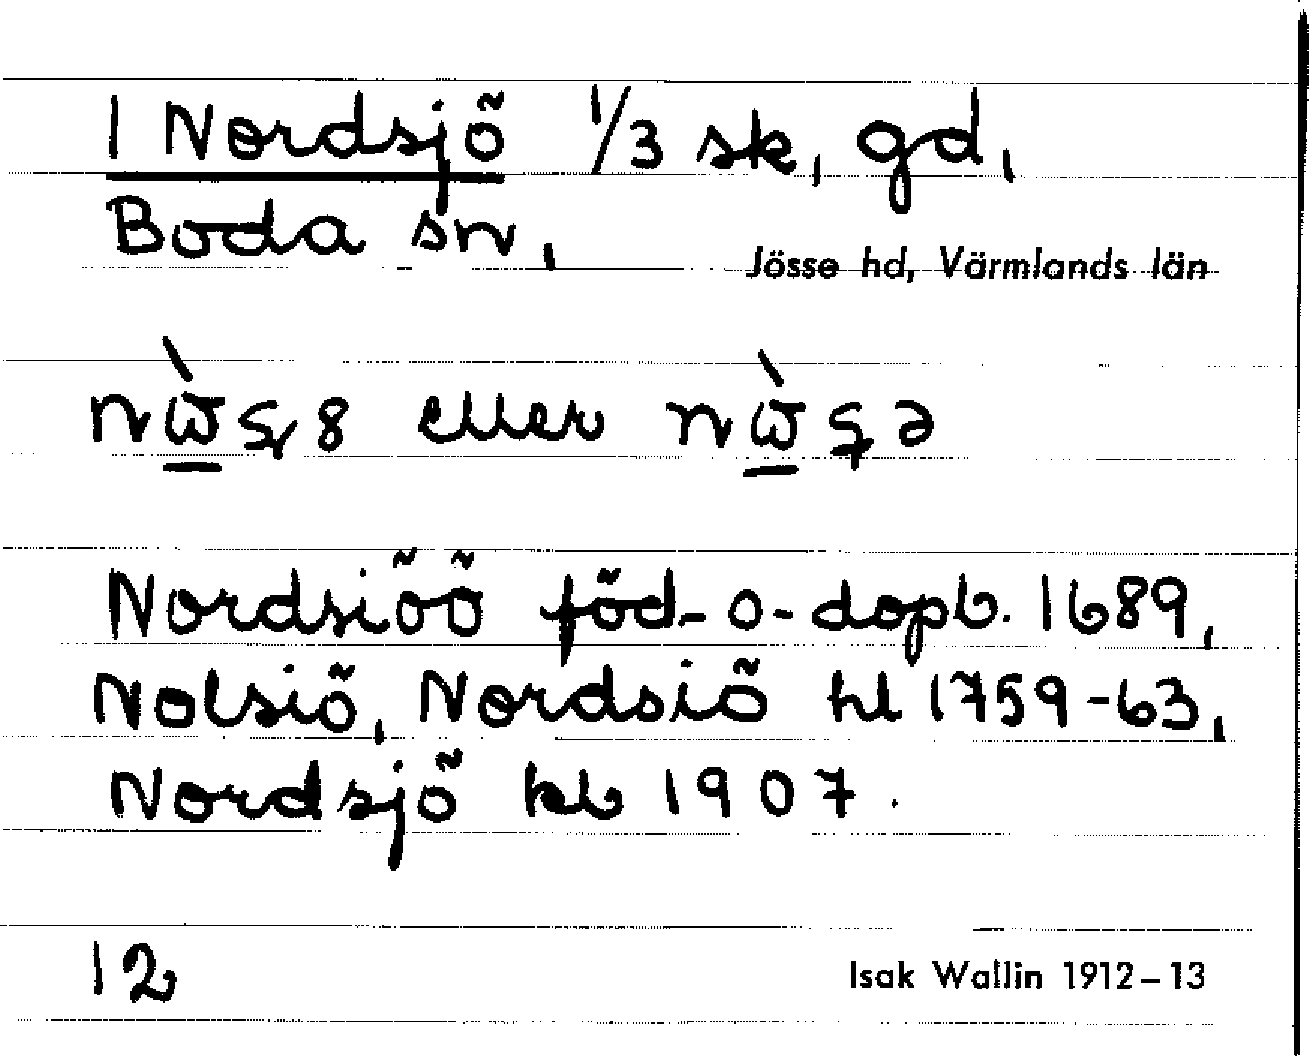 1 Nordsjö 1/3 sk, gd,
Boda sn,
Jösse hd, Värmlands län
eller
Nordsiöö föd- o- dopb. 1689,
Nolsiö, Nordsiö hl 1759-63,
Nordsjö kb 1907.
12
Isak Wallin 1912–13